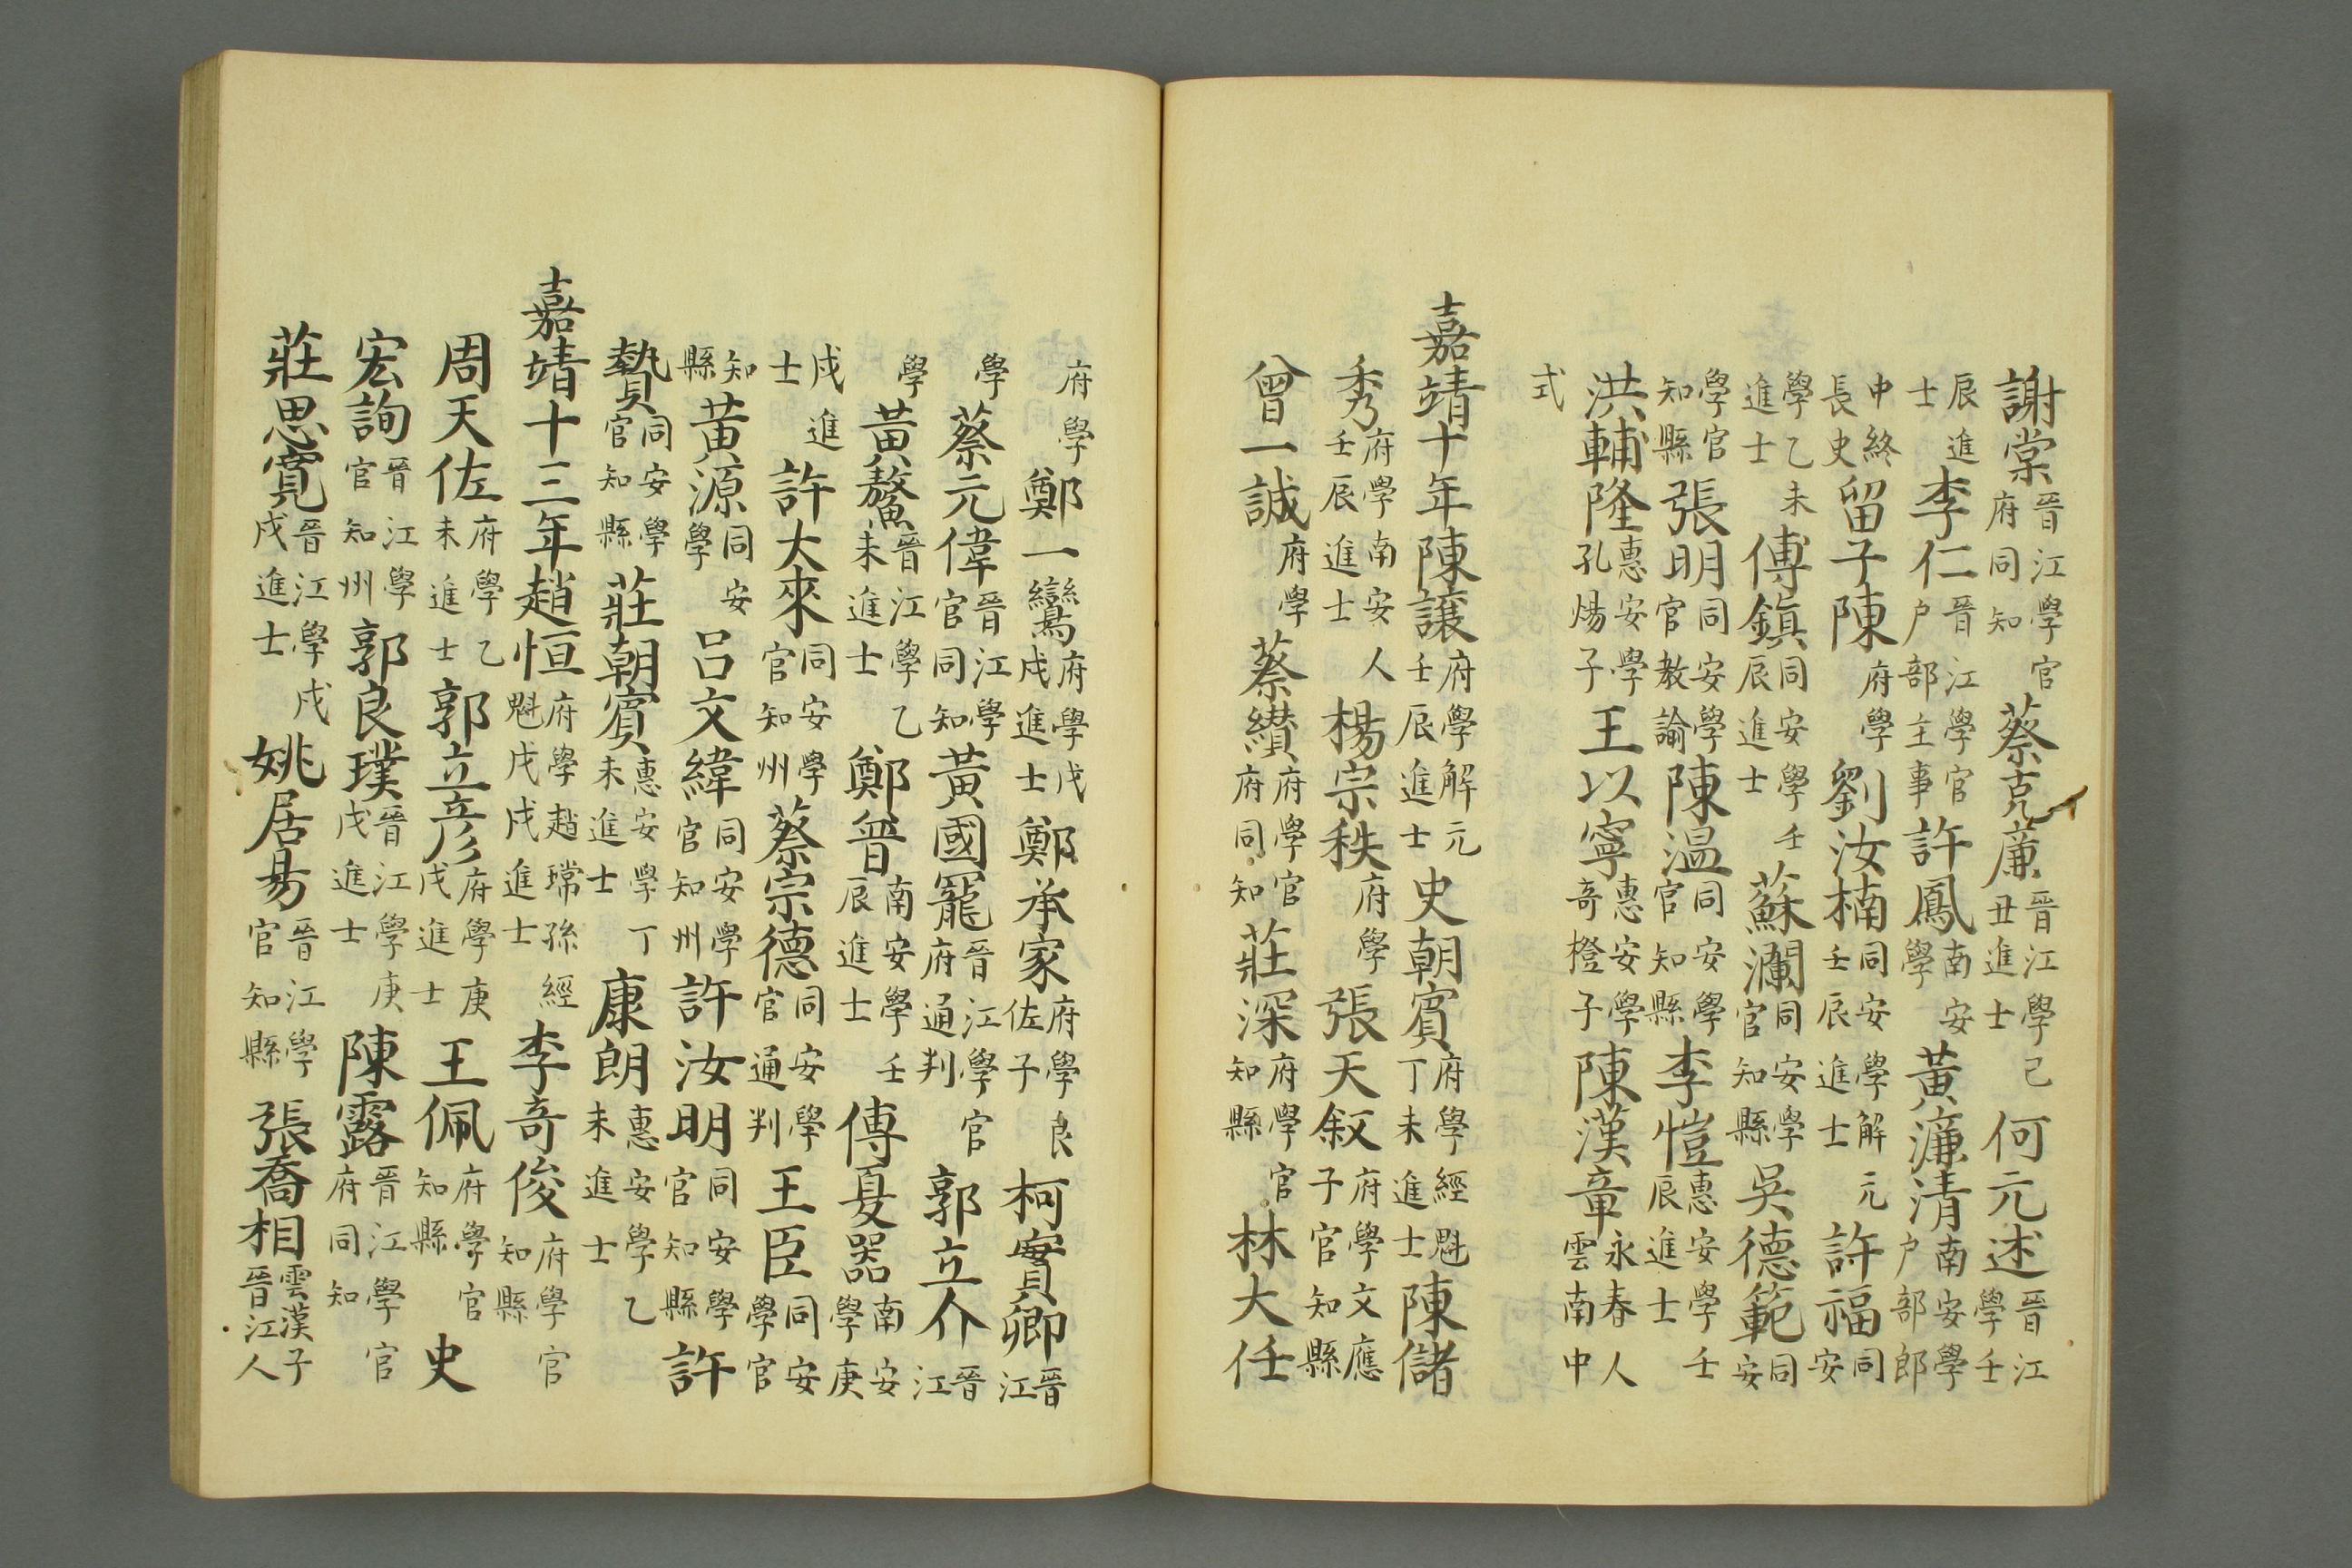 謝棠晉江學官府同知蔡克廉晉江學己丑進士何元述晉江學壬
辰進士李仁晉江學官户部主事許鳳南安學黃濂清南安學户部郎
中終長史留子陳府學劉汝楠同安學解元壬辰進士許福同安
學乙未進士傅鎮同安學壬辰進士蘇瀾同安學官知縣吳德範同安
學官知縣張明同安學官教諭陳温同安學官知縣李愷惠安學壬辰進士
洪輔隆惠安學孔煬子王以寧惠安學奇橙子陳漢章永春人雲南中
式
嘉靖十年陳讓府學解元壬辰進士史朝賓府學經魁丁未進士陳儲
秀府學南安人壬辰進士楊宗秩府學張天叙府學文應子官知縣
曾一誠府學蔡纉府學官府同知莊深府學官知縣林大任
府學鄭一鸞府學戊戌進士鄭承家府學良佐子柯實卿晉江
學蔡元偉晉江學官同知黃國寵晉江學官府通判郭立介晉江
學黃鰲晉江學乙未進士鄭晉南安學壬辰進士傅夏器南安學庚
戌進士許大來同安學官知州蔡宗德同安學官通判王臣同安學官
知縣黃源同安學呂文緯同安學官知州許汝明同安學官知縣許
贄同安學官知縣莊朝賓惠安學丁未進士康朗惠安學乙未進士
嘉靖十三年趙恒府學趙瑺孫經魁戊戌進士李奇俊府學官知縣
周天佐府學乙未進士郭立彦府學庚戌進士王佩府學官知縣史
宏詢晉江學官知州郭良璞晉江學庚戌進士陳露晉江學官府同知
莊思寬晉江學戊戌進士姚居易晉江學官知縣張喬相雲漢子晉江人